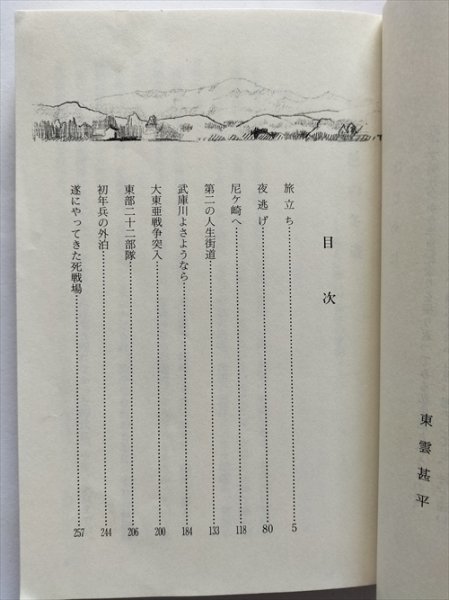 東雲甚平
目次
旅立ち……5
夜逃げ……80
尼ケ崎へ……118
第二の人生街道……133
武庫川よさようなら……184
大東亜戦争突入……200
東部二十二部隊……206
初年兵の外泊……244
遂にやってきた死戦場……257